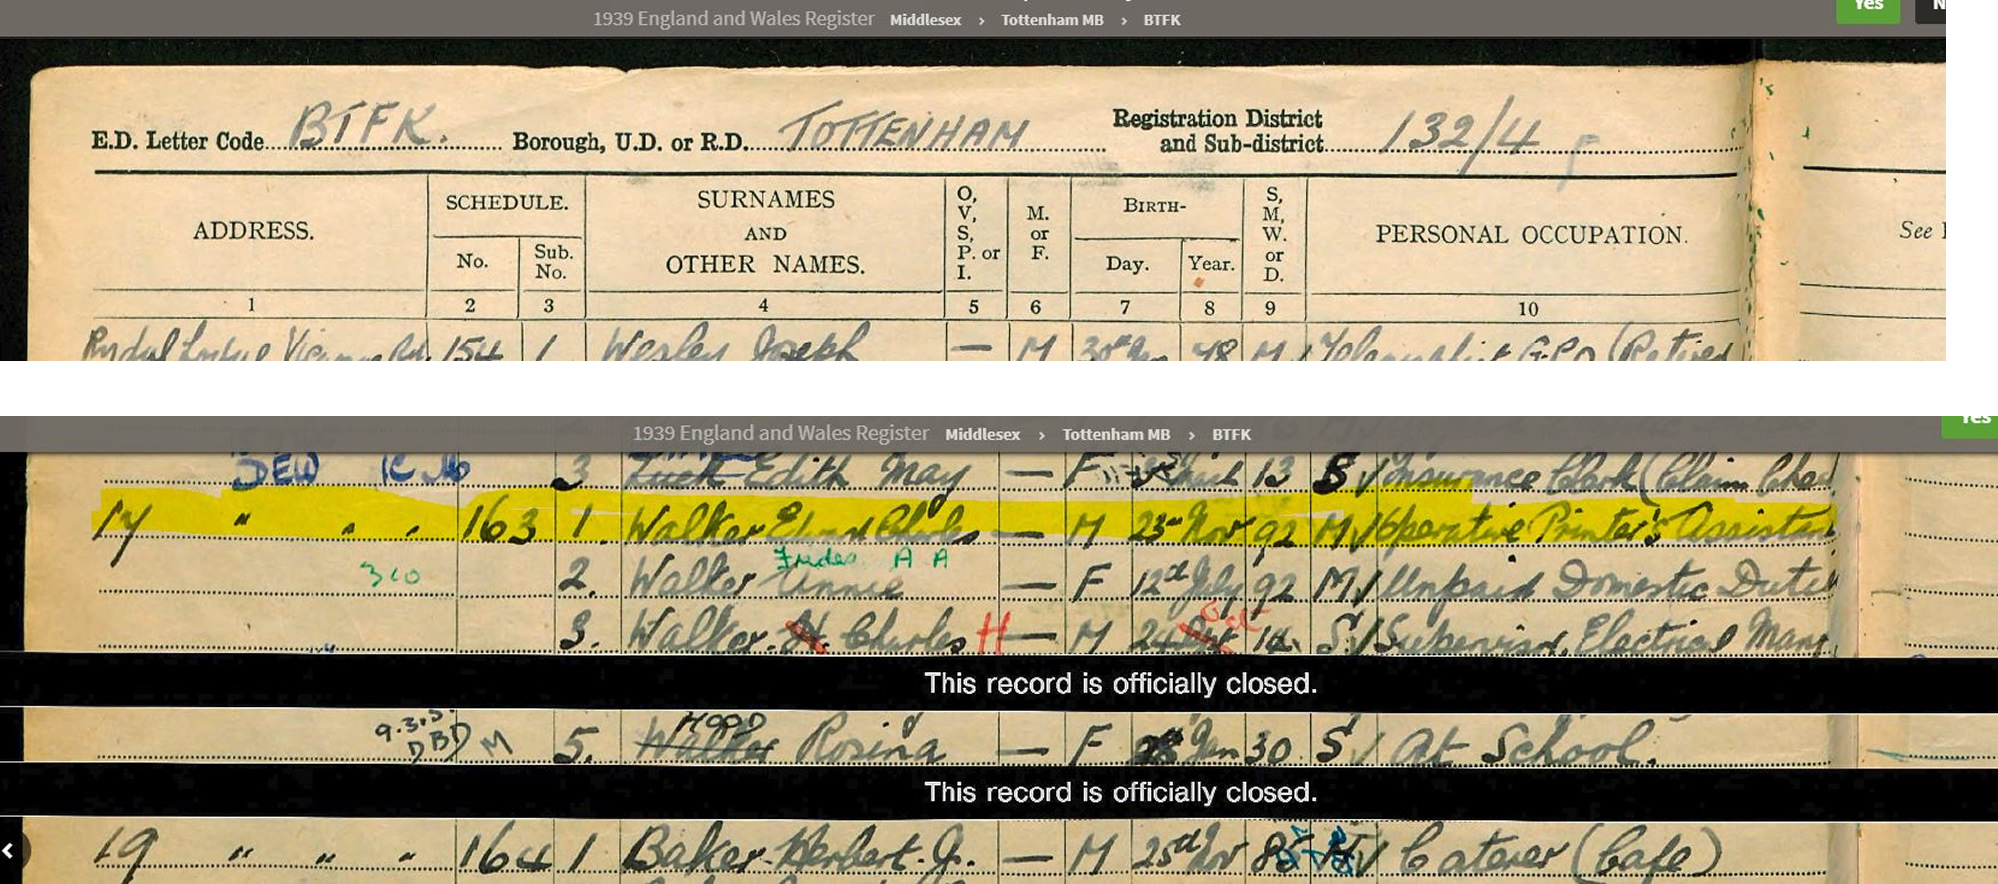 1939 England and Wales Register Middlesex › Tottenham MB › BTFK
Yes N
E.D. Letter Code BTFK. Borough, U.D. or R.D. TOTTENHAM Registration District and Sub-district 132/4
ADDRESS. SCHEDULE. No. Sub. No. SURNAMES AND OTHER NAMES. O, V, S, P. or I. M. or F. BIRTH- Day. Year. S, M, W. or D. PERSONAL OCCUPATION. See
1 2 3 4 5 6 7 8 9 10
154 1 Wesley Joseph — M 30th Jan 78 M Telegraphist G.P.O (Retired
1939 England and Wales Register Middlesex › Tottenham MB › BTFK
Yes
DEW 3 Edith May — F 13 S Insurance Clerk (Claim
17 " " " 163 1. Walker Charles — M 23rd Nov 92 M Operative Printer's Assistan
A A
2. Walker Annie — F 12th July 92 M Unpaid Domestic Dutie
Oct
3. Walker H Charles H — M 24 14 S Electrical
This record is officially closed.
9.3.5. HOOD
DBD M 5. Walker Rosina — F 28th Jan 30 S At School.
This record is officially closed.
19 " " " 164 1 Baker Herbert. J. — M 25th Nov 85 M Caterer (Cafe)